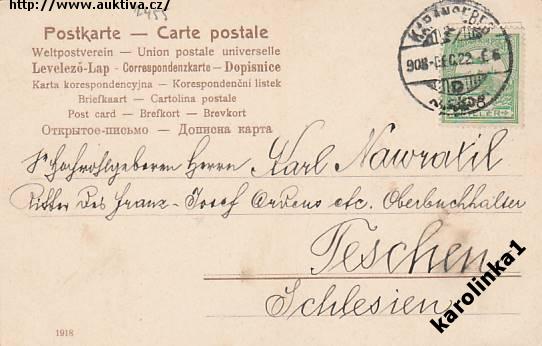 http://www.auktiva.cz/
2455
Postkarte — Carte postale
Weltpostverein — Union postale universelle
Levelező-Lap - Correspondenzkarte - Dopisnice
Karta korespondencyjna — Korespondenční listek
Briefkaart — Cartolina postale
Post card — Brefkort — Brevkort
Открытое-письмо — Дописна карта
908 -DEC. 22
Sr Hochwohlgeboren Herrn Karl Nawratil
Ritter des Franz-Josef Ordens etc. Oberbuchhalter
Teschen
Schlesien
1918
karolinka1